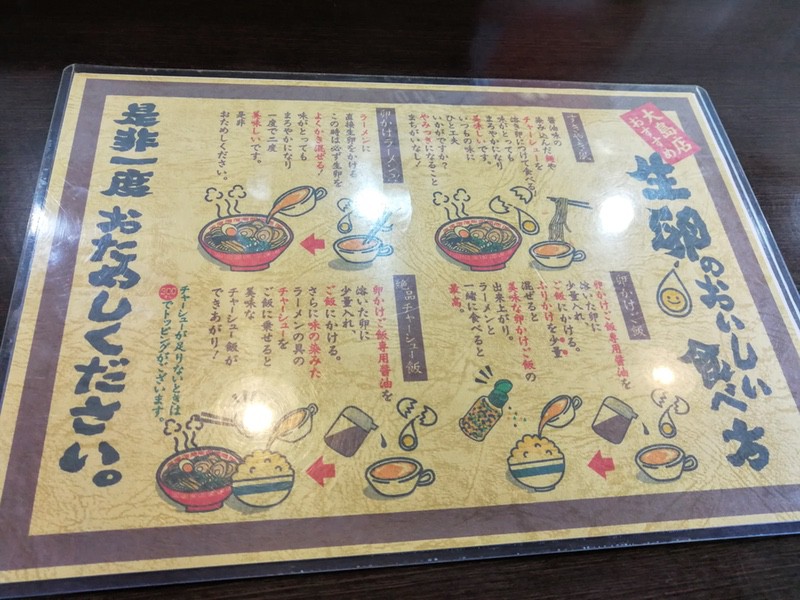 大島店
おすすめ
生卵のおいしい食べ方
すきやき風
醤油味の
染み込んだ麺や
チャーシューを
溶き卵につけて食べると
味がとっても
まろやかになり
美味しいです。
いつもの味に
ひと工夫
いかがですか？
やみつきになること
まちがいなし！
卵かけラーメン
ラーメンに
直接生卵をかける。
この時は必ず生卵を
よくかき混ぜる！
味がとっても
まろやかになり
一度で二度
美味しいです。
是非
おためしください。
卵かけご飯
卵かけご飯専用醤油を
溶いた卵に
少量入れ
ご飯にかける。
ふりかけを少量
混ぜると
美味な卵かけご飯の
出来上がり。
ラーメンと
一緒に食べると
最高。
絶品チャーシュー飯
卵かけご飯専用醤油を
溶いた卵に
少量入れ
ご飯にかける。
さらに味の染みた
ラーメンの具の
チャーシューを
ご飯に乗せると
美味な
チャーシュー飯が
できあがり！
チャーシューが足りないときは
でトッピングがございます
是非一度おためしください。